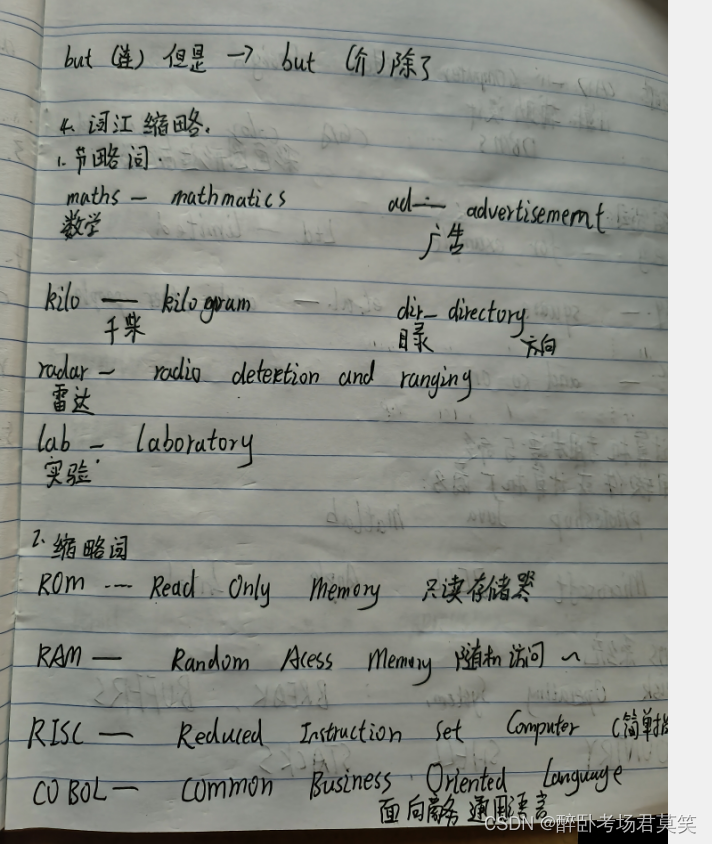 but (连) 但是 → but (介) 除了
4. 词汇缩略.
1. 节略词.
maths — mathmatics ad — advertisement
数学 广告
kilo — kilogram dir — directory
千 目录 方向
radar — radio detection and ranging
雷达
lab — laboratory
实验
2. 缩略词
ROM --- Read Only Memory 只读存储器
RAM — Random Acess Memory 随机访问 ~
RISC — Reduced Instruction Set Computer (简单指
COBOL — Common Business Oriented Language
面向商务通用语言
CSDN @醉卧考场君莫笑